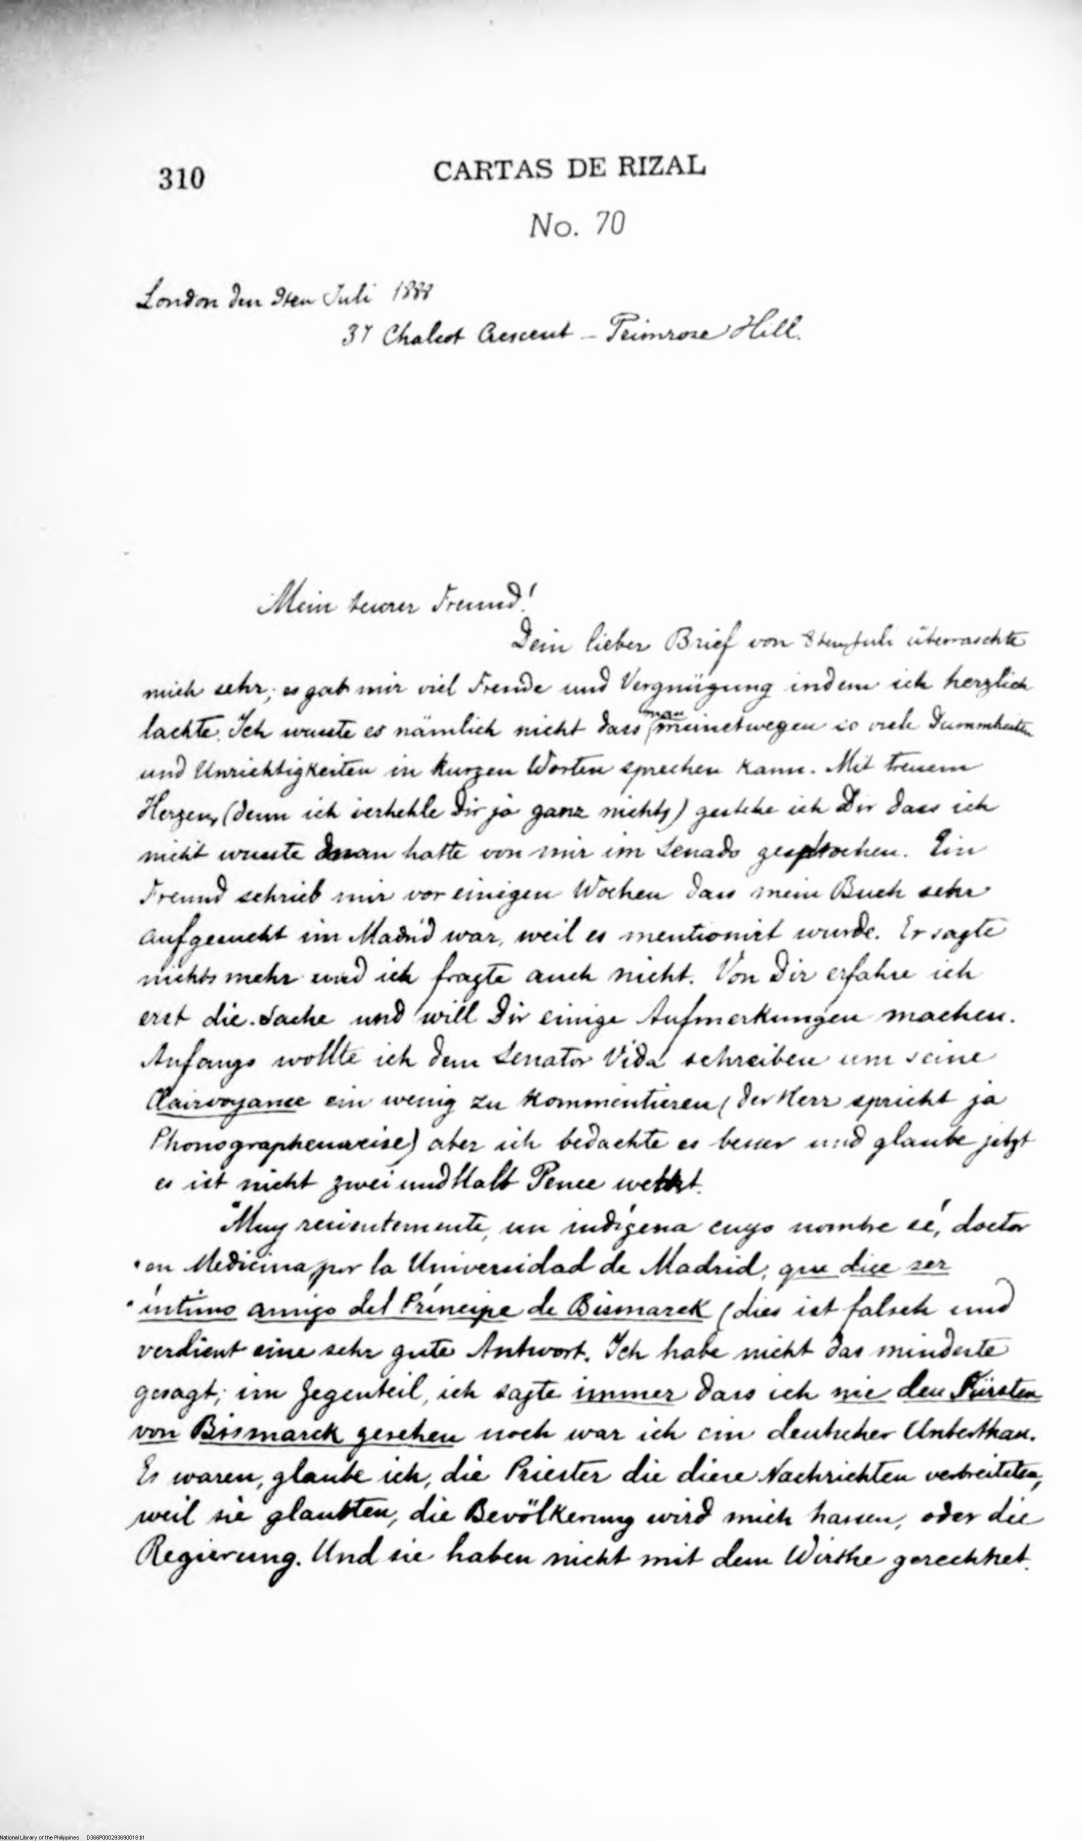 310
CARTAS DE RIZAL
No. 70
London den 9ten Juli 1888
37 Chalcot Crescent – Primrose Hill.
Mein teurer Freund!
Dein lieber Brief von Juli überraschte
mich sehr; es gab mir viel Freude und Vergnügung indem ich herzlich
lachte. Ich wusste es nämlich nicht dass man meinetwegen so viele Dummheiten
und Unrichtigkeiten in kurzen Worten sprechen kann. Mit treuem
Herzen, (denn ich verhehle Dir ja ganz nichts) gestehe ich Dir dass ich
nicht wusste man hatte von mir im Senado gesprochen. Ein
Freund schrieb mir vor einigen Wochen dass mein Buch sehr
aufgesucht im Madrid war, weil es mentionirt wurde. Er sagte
nichts mehr und ich fragte auch nicht. Von Dir erfahre ich
erst die Sache und will Dir einige Aufmerkungen machen.
Anfangs wollte ich dem Senator Vida schreiben um seine
Clairvoyance ein wenig zu kommentieren (der Herr spricht ja
Phonographenweise) aber ich bedachte es besser und glaube jetzt
es ist nicht zwei und Halb Pence wert.
"Muy recientemente, un indígena cuyo nombre sé, doctor
"en Medicina por la Universidad de Madrid, que dice ser
"íntimo amigo del Príncipe de Bismarck (dies ist falsch und
verdient eine sehr gute Antwort. Ich habe nicht das minderte
gesagt; im Gegenteil, ich sagte immer dass ich nie den Fürsten
von Bismarck gesehen noch war ich ein deutscher Unterthan.
Es waren, glaube ich, die Priester die diese Nachrichten verbreiteten,
weil sie glaubten, die Bevölkerung wird mich hassen, oder die
Regierung. Und sie haben nicht mit dem Wirthe gerechnet.
National Library of the Philippines